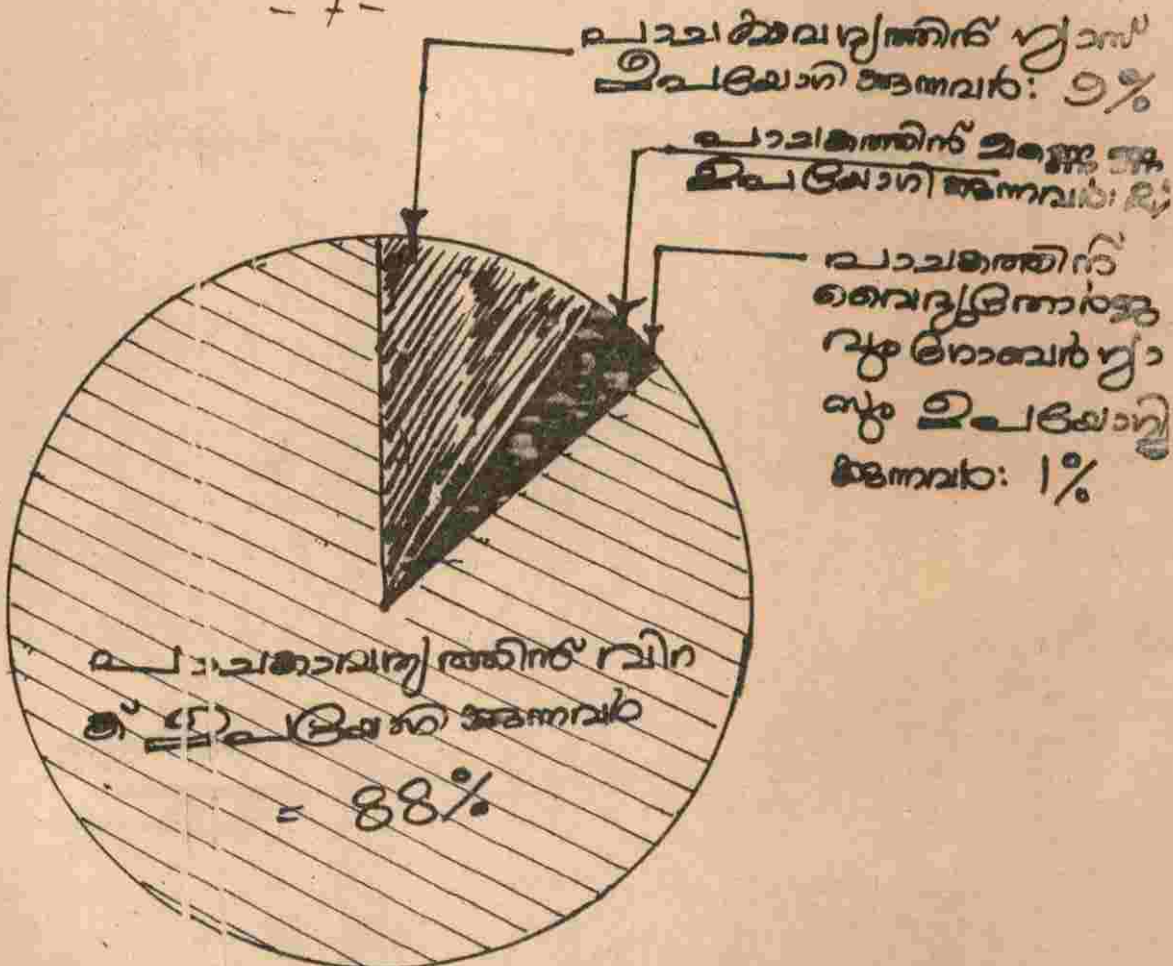 - 7 -
പാചകാവശ്യത്തിന് ഗ്യാസ്
ഉപയോഗിക്കുന്നവർ: 9%
പാചകത്തിന് മണ്ണെണ്ണ
ഉപയോഗിക്കുന്നവർ:
പാചകത്തിന്
വൈദ്യുതോർജ്ജ
വും ഗോബർ ഗ്യാ
സും ഉപയോഗി
ക്കുന്നവർ: 1%
പാചകാവശ്യത്തിന് വിറ
ക് ഉപയോഗിക്കുന്നവർ
= 88%